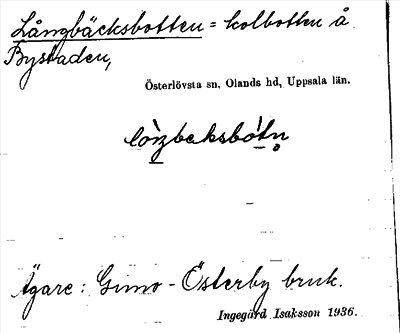 Långbäcksbotten = kolbotten å
Bystaden,
Österlövsta sn, Olands hd, Uppsala län.
Ägare: Gimo - Österby bruk.
Ingegärd Isaksson 1936.